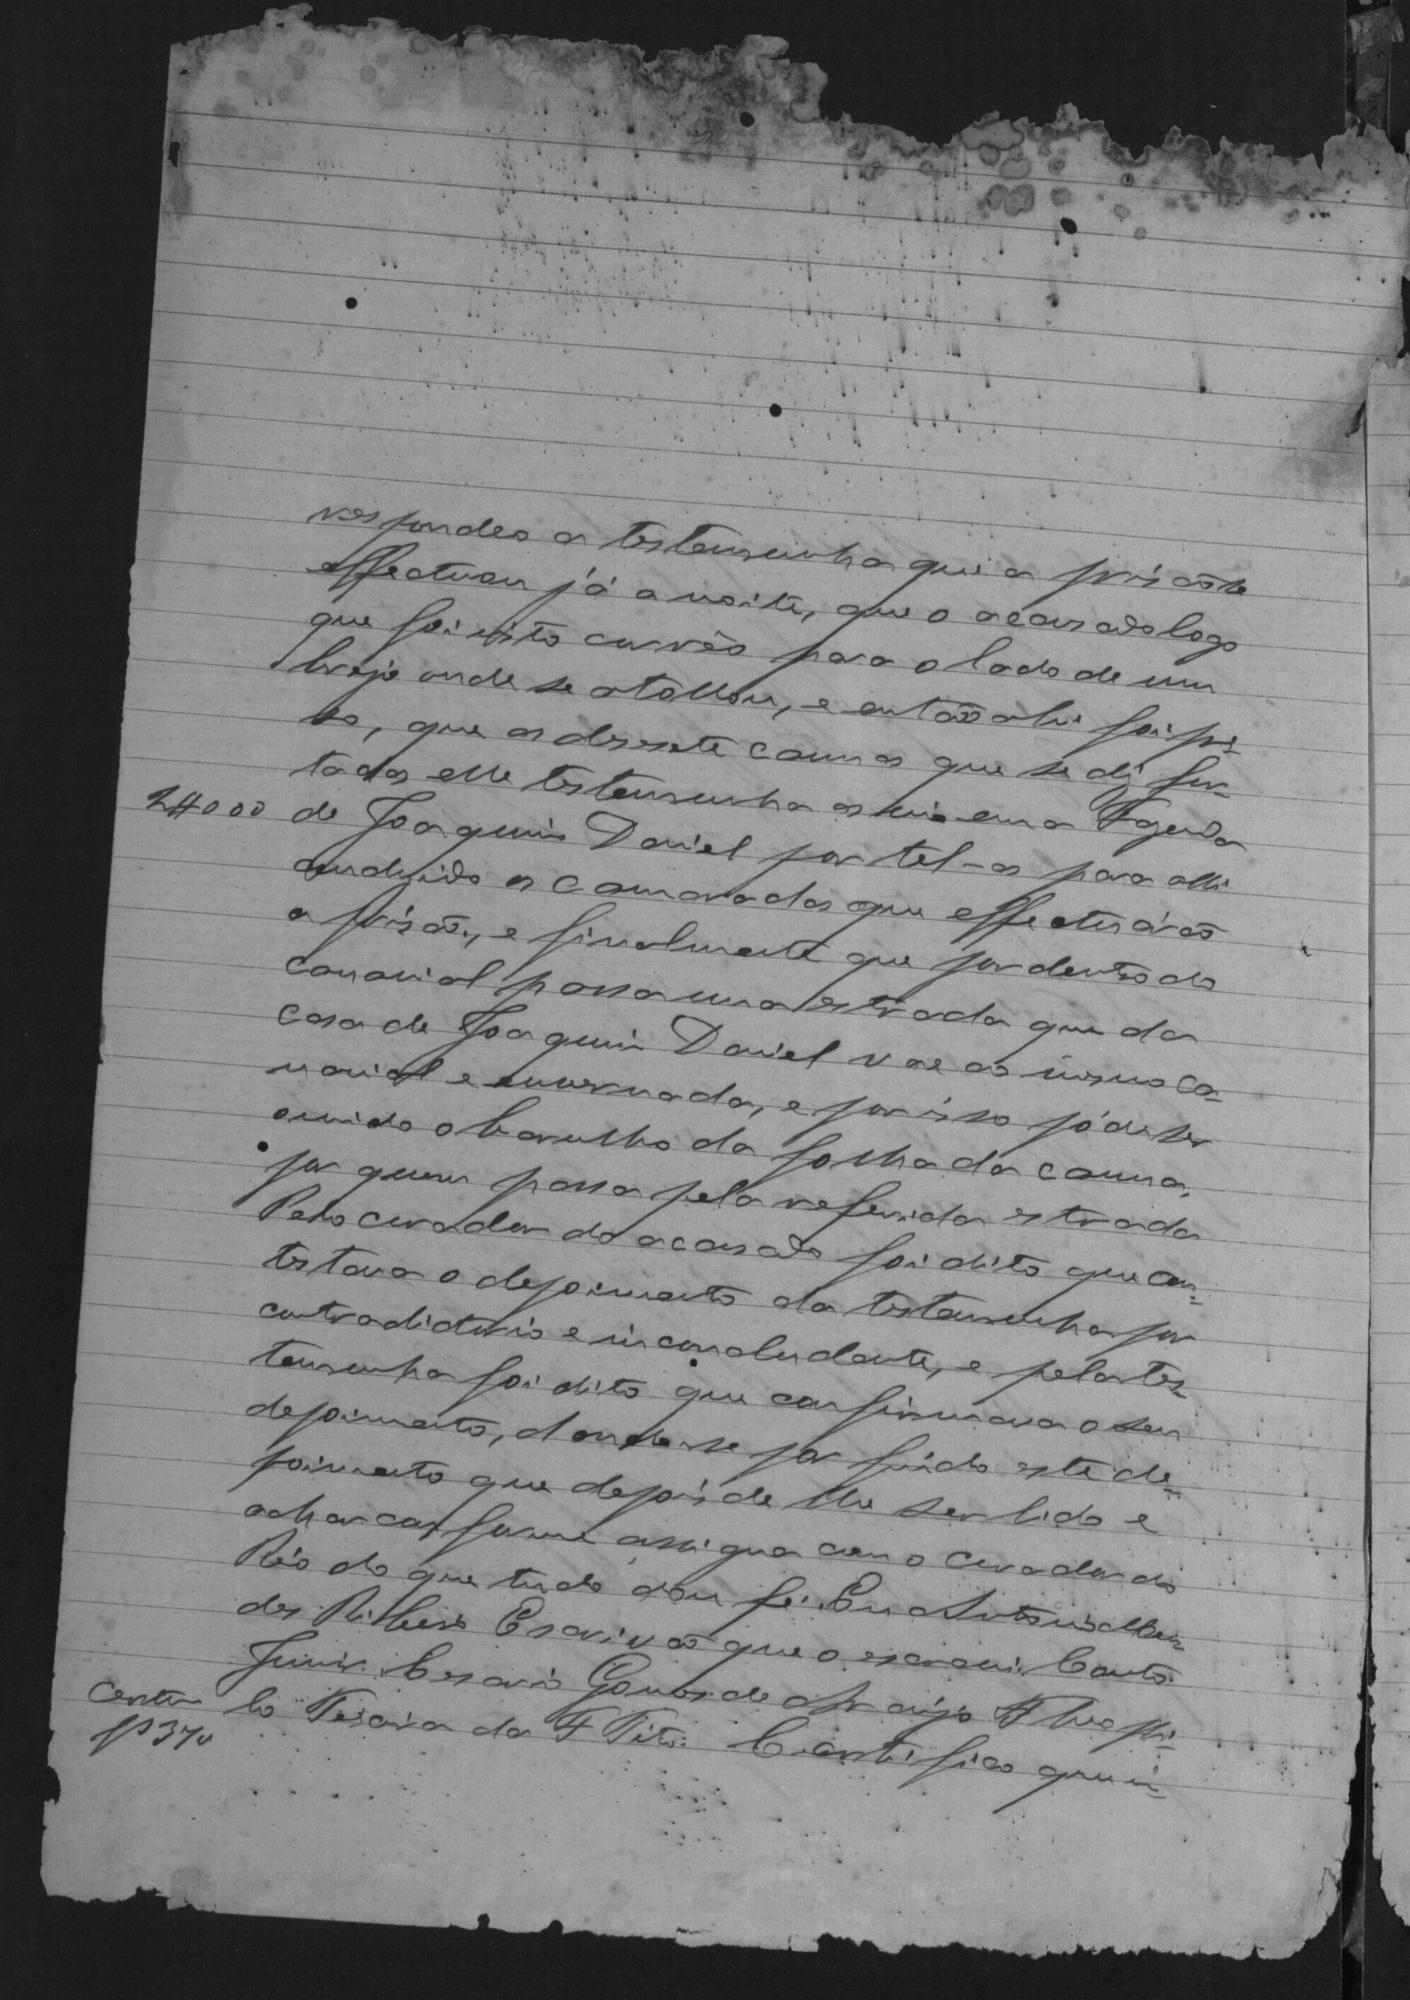 respondeo a testemunha que a prisão se
effectuou já a noite, que o acusado logo
que foi visto correo para o lado de um
brejo onde se atollou, e então ahi foi pre-
so, que as desesete cannas que se diz fur-
tadas elle testemunha as vio em a Fazenda
2#000 de Joaquim Daniel por tel-as para alli
conduzido os camaradas que effectuárão
a prisão, e finalmente que por dentro do
canavial passa uma estrada que da
casa de Joaquim Daniel vae ao mesmo ca-
navial e envernada, e por isso póde ser
ouvido o barulho da folha da canna,
por quem passa pela referida estrada
Pelo curador do acusado foi dito que con-
testava o depoimento da testemunha por
contradictorio e inconcludente, e pela tes-
temunha foi dito que confirmava o seu
depoimento, dando-se por findo este de-
poimento que depois de lhe ser lido e
achar conforme assigna com o curador do
Réo do que tudo dou fé. Eu Antonio Men-
des Ribeiro Escrivão que o escrevi. Couto
Junior. Cesario Gomes de Araujo Theophi-
lo Teixeira da Tito. Certifico que in-
Certm
1$370